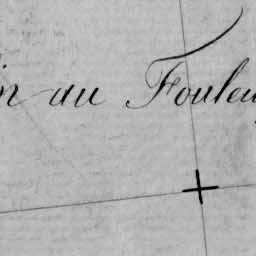 in au Fouleu